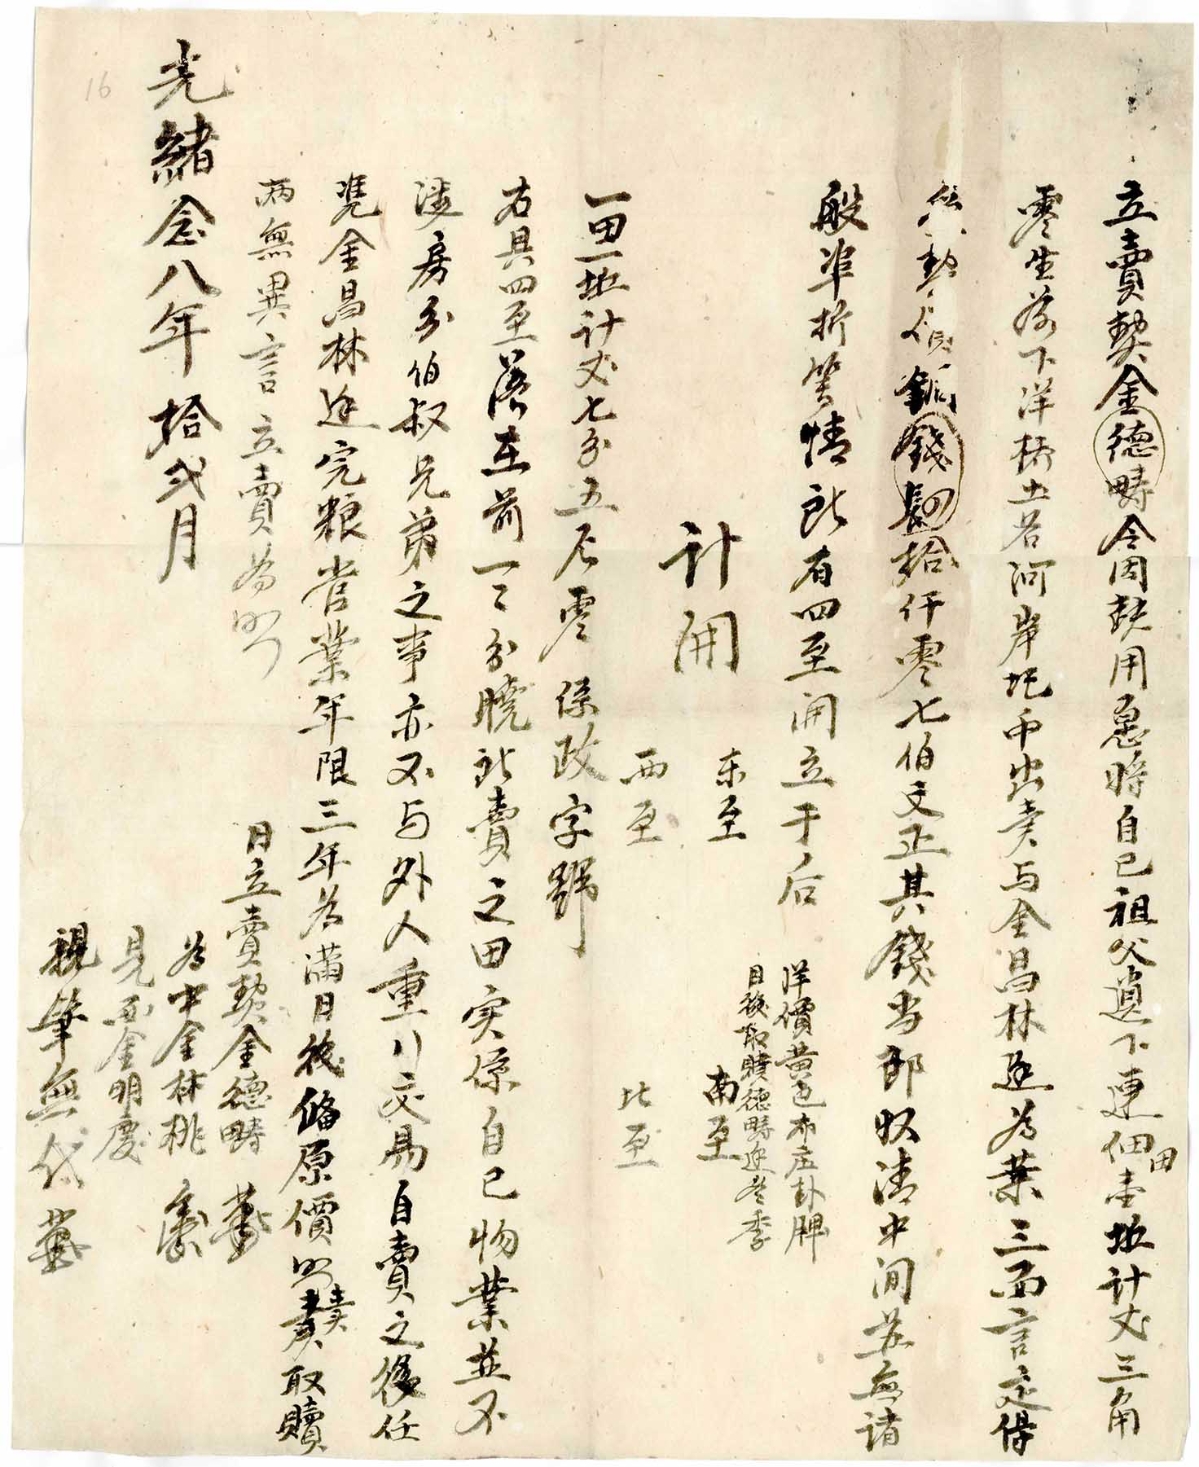 立賣契金德疇今因缺用急將自己祖父遺下連佃田壹坵計丈三角
零生落下洋橋土名河岸圯而出賣与金昌林邊為業三面言定得
錢四拾仟零七伯文正其錢当即收清中间並無諸
般準折等情所有四至開立于后
洋價黃邑本庄卦牌
日後取贖德疇邊冬季
計開
東至
南至
西至
北至
一田一坵計丈七分五厘零係政字號
右具四至落在前一一分曉此賣之田实係自己物業並不
涉房分伯叔兄弟之事亦不与外人重行交易自賣之後任
凭金昌林邊完粮管業年限三年為滿日後俻原價照賣契取贖
兩無異言立賣為照
光緒念八年拾弍月
日立賣契金德疇
為中金林桃
見面金明慶
親筆無代
16